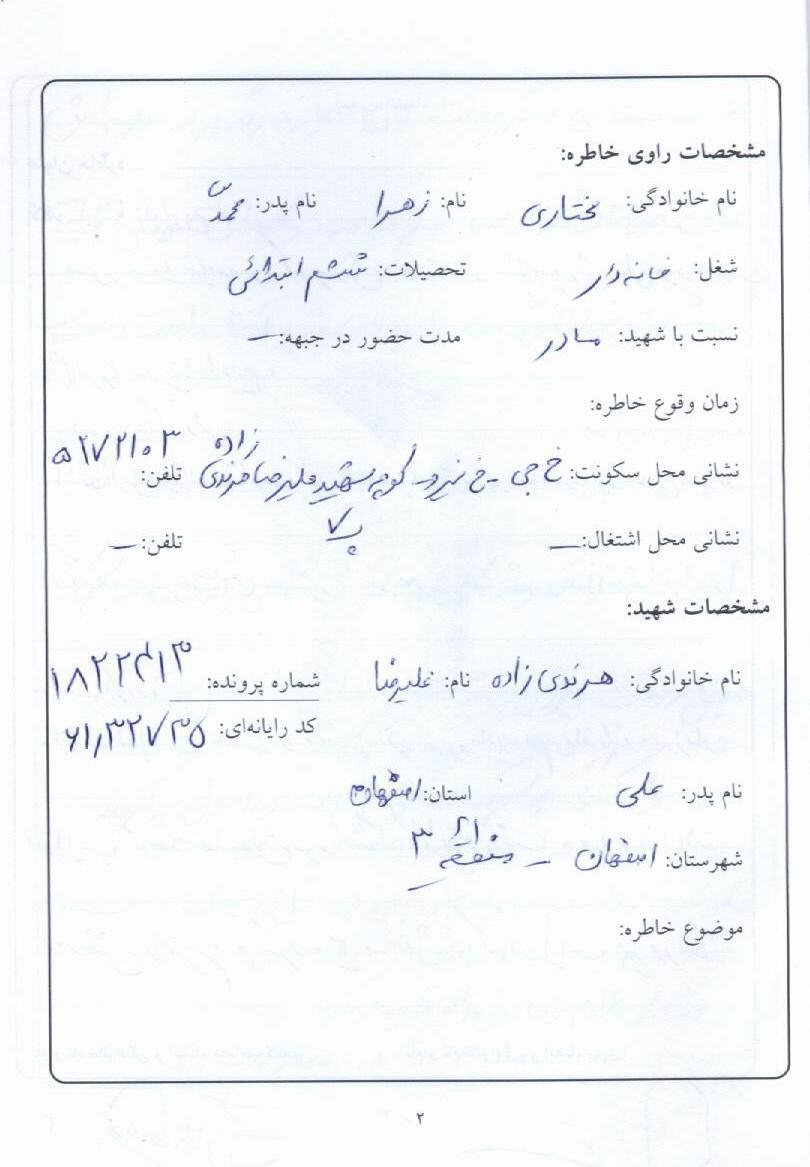 مشخصات راوی خاطره:
نام خانوادگی: مختاری نام: زهرا نام پدر: محمد
شغل: خانه دار تحصیلات: ششم ابتدائی
نسبت با شهید: مادر مدت حضور در جبهه: –
زمان وقوع خاطره:
نشانی محل سکونت: خ جی - خ نیرو - کوچه شهید علیرضا هرندی زاده تلفن: ۵۲۷۲۱۰۳
پ ۷
نشانی محل اشتغال: – تلفن: –
مشخصات شهید:
نام خانوادگی: هرندی زاده نام: علیرضا شماره پرونده:
کد رایانه‌ای:
نام پدر: علی استان: اصفهان
شهرستان: اصفهان - منطقه ۳
موضوع خاطره:
۲